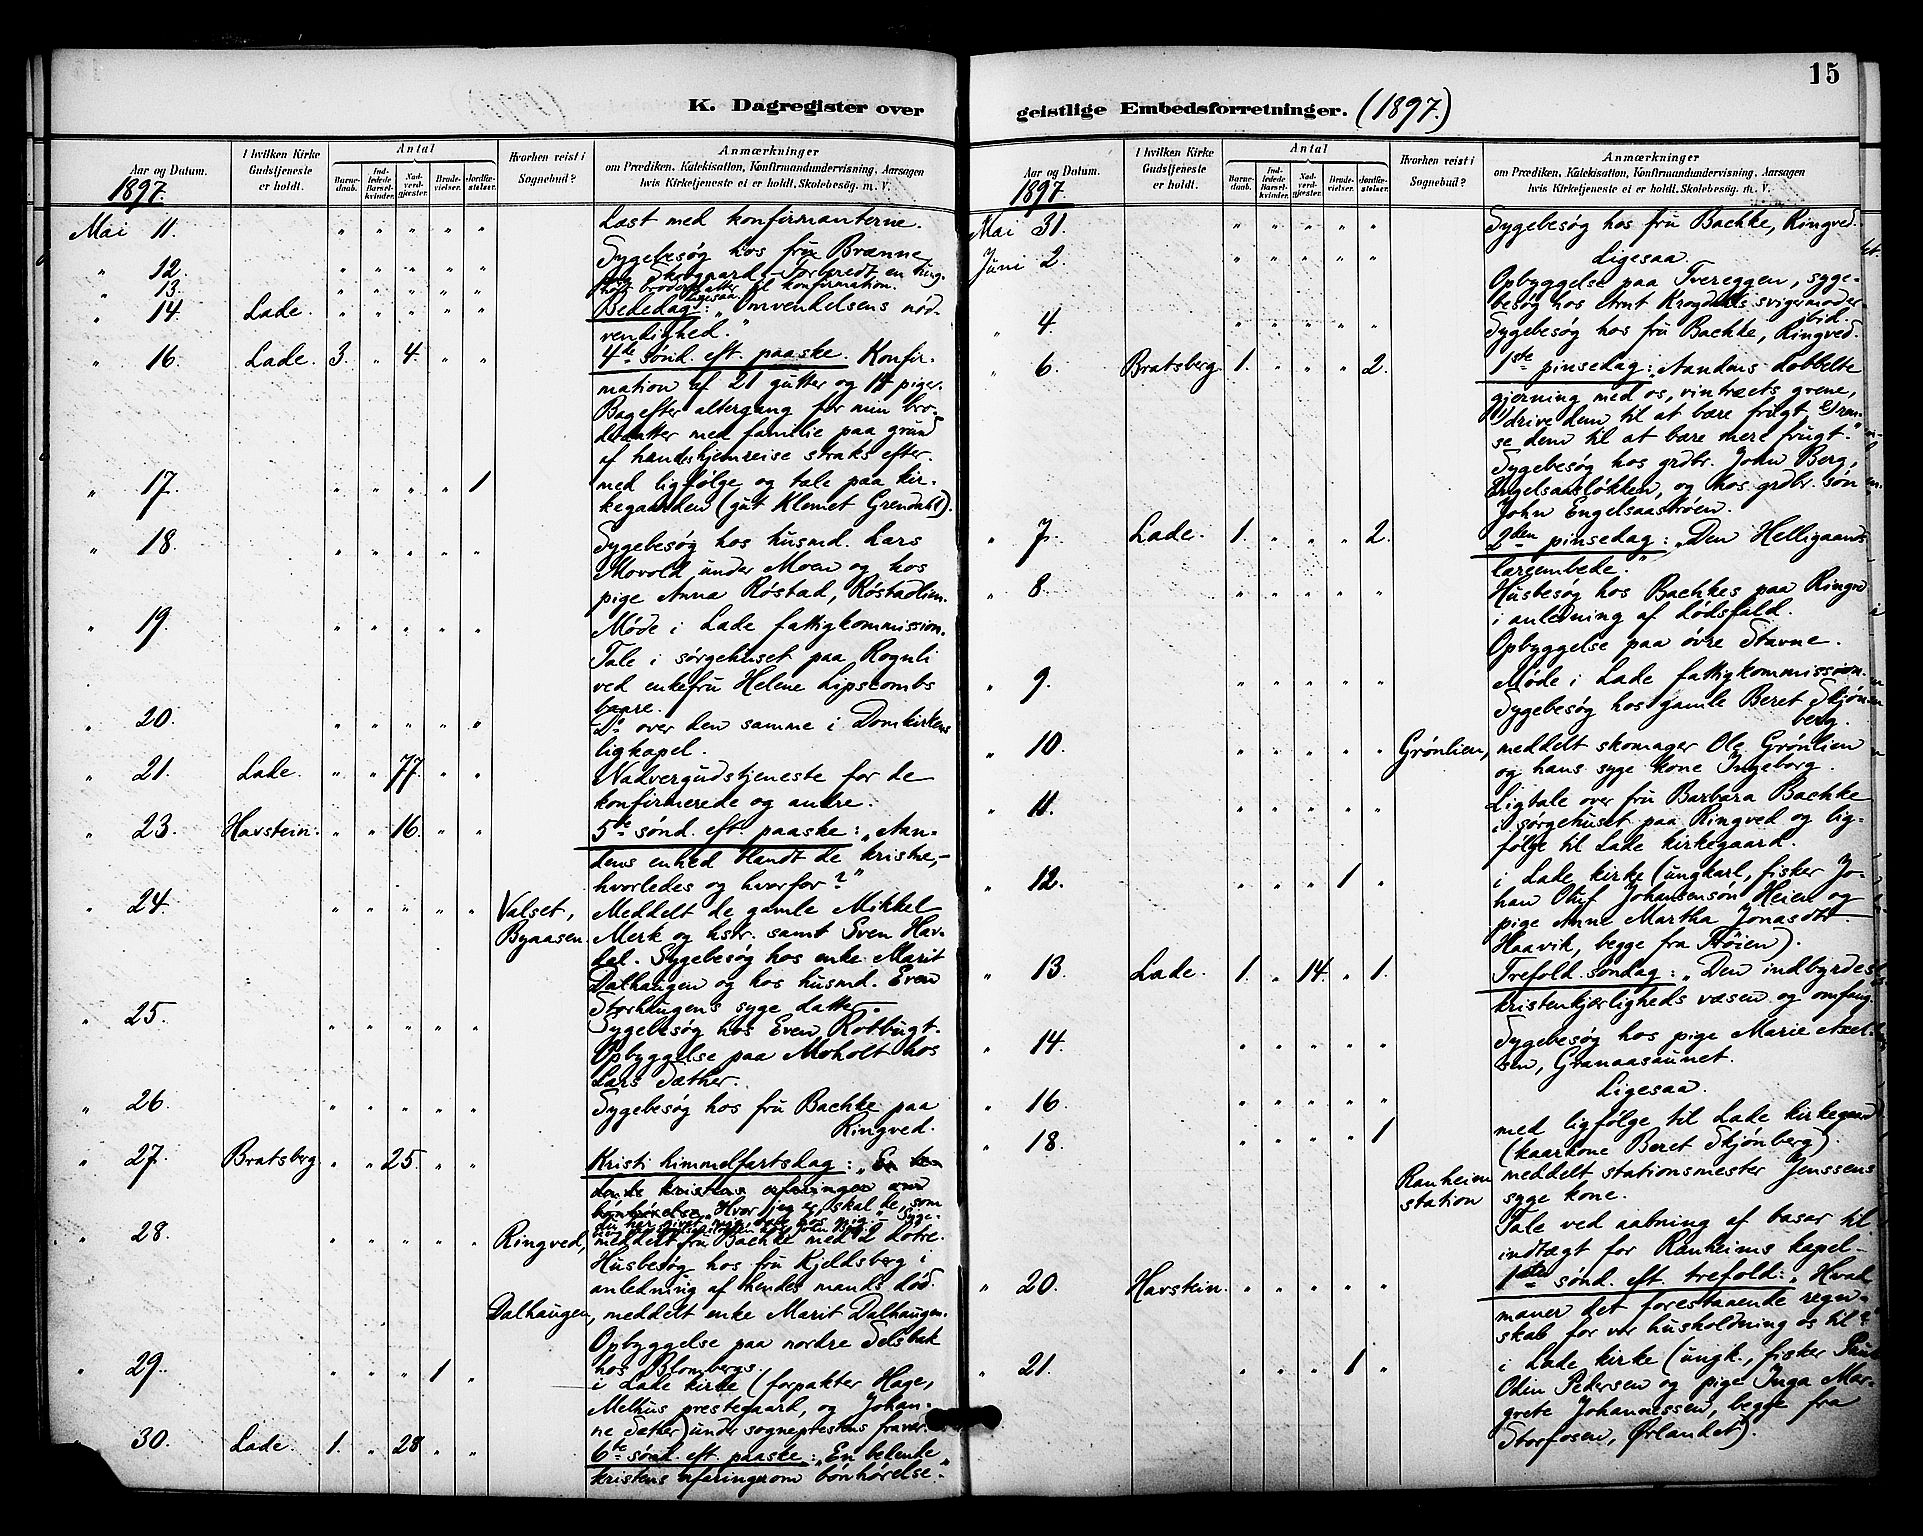 15
K. Dagregister over
geistlige Embedsforretninger. (1897.)
Aar og Datum.
I hvilken Kirke Gudstjeneste er holdt.
Antal
Barnedaab.
Indledede Barselkvinder.
Nadverdgjester.
Brudevielser.
Jordfæstelser.
Hvorhen reist i Sognebud?
Anmærkninger
om Prædiken, Katekisation, Konfirmandundervisning, Aarsagen
hvis Kirketjeneste ei er holdt. Skolebesøg. m. V.
1897.
Mai 11. " " " " " Læst med konfirmanterne.
Sygebesøg hos fru Brænne,
" 12. " " " " "
" 13. " " " " " brodersdatter til konfirmation.
Ligesaa.
" 14. Lade. " " " " " Bededag: „Omvendelsens nød-
vendighed."
" 16. Lade. 3. " 4. " " 4de sønd. eft. paaske. Konfir-
mation af 21 gutter og 17 piger.
Bagefter altergang for min bro-
derdatter med familie paa grund
af hendes hjemreise straks efter.
" 17. " " " " 1 med ligfølge og tale paa kir-
kegaarden (gut Klemet Grendal).
" 18. " " " " " Sygebesøg hos husmd. Lars
Movold under Moen og hos
pige Anna Røstad, Røstadlien.
" 19. " " " " " Møde i Lade fattigkommission.
Tale i sørgehuset paa Rognli
ved enkefru Helene Lipscombs
baare.
" 20. " " " " " Do over den samme i Domkirkens
ligkapel.
" 21. Lade. " " 77. " " Nadvergudstjeneste for de
konfirmerede og andre.
" 23. Havstein. " " 16. " " 5te sønd. eft. paaske: „Aan-
dens enhed blandt de kristne, -
hvorledes og hvorfor?"
" 24. " " " " " Valset, Meddelt de gamle Mikkel
Byaasen. Merk og hstr. samt Sven Hav-
dal. Sygebesøg hos enke Marit
Dalhaugen og hos husmd. Even
Storhaugens syge datter.
" 25. " " " " " Sygebesøg hos Even Rotbugt.
Opbyggelse paa Moholt hos
Lars Sæther.
" 26. " " " " " Sygebesøg hos fru Bachke paa
Ringved.
" 27. Bratsberg " " 25. " " Kristi himmelfartsdag: „En
kristens erfaringer
bønhørelse „Hvor jeg er, skal de, som
du har givet mig, være hos mig." Syge-
" 28. " " " " " Ringved, meddelt fru Bachke med 2 døtre.
Husbesøg hos fru Kjeldsberg i
anledning af hendes mands død.
Dalhaugen, meddelt enke Marit Dalhaugen.
Opbyggelse paa nordre Selsbak
hos Blombergs.
" 29. " " " 1 " i Lade kirke (forpakter Hage,
Melhus prestegaard, og Johan-
ne Sæther) under sogneprestens fravær.
30. Lade. 1. " 28 " " 6te sønd. eft. paaske: „En bedende
kristens erfaring om bønhørelse."
Aar og Datum.
I hvilken Kirke Gudstjeneste er holdt.
Antal
Barnedaab.
Indledede Barselkvinder.
Nadverdgjester.
Brudevielser.
Jordfæstelser.
Hvorhen reist i Sognebud?
Anmærkninger
om Prædiken, Katekisation, Konfirmandundervisning, Aarsagen
hvis Kirketjeneste ei er holdt. Skolebesøg. m. V.
1897.
Mai 31. " " " " " Sygebesøg hos fru Bachke, Ringved.
Juni 2. " " " " " Ligesaa.
Opbyggelse paa Tvereggen, syge-
besøg hos Arnt Krogdals svigermoder
ibid.
" 4. " " " " " Sygebesøg hos fru Bachke, Ringved.
" 6. Bratsberg 1. " " " 2. 1ste pinsedag: „Aandens dobbelte
gjerning med os, vintræets grene,
1) drive dem til at bære frugt 2) ren-
se dem til at bære mere frugt."
Sygebesøg hos grdbr. John Berg,
Engelsaasløkken, og hos grdbr. søn
John Engelsaastrøen.
" 7. Lade. 1. " " " 2. 2den pinsedag: „Den Helligaands
læreembede."
" 8. " " " " " Husbesøg hos Bachkes paa Ringve
i anledning af dødsfald.
Opbyggelse paa øvre Stavne.
" 9. " " " " " Møde i Lade fattigkommission.
Sygebesøg hos gamle Beret Skjøn-
berg.
" 10. " " " " " Grønlien, meddelt skomager Ole Grønlien
og hans syge kone Ingeborg.
" 11. " " " " " Ligtale over fru Barbara Bachke
i sørgehuset paa Ringved og lig-
følge til Lade kirkegaard.
" 12. " " " 1 " i Lade kirke (ungkarl, fisker Jo-
han Oluf Johansensøn Heien og
pige Anne Martha Jonasdt
Haavik, begge fra Frøien).
" 13. Lade. 1. " 14. " 1. Trefold. søndag: „Den indbyrdes
kristenkjærligheds væsen og omfang.
" 14. " " " " " Sygebesøg hos pige Marie Axel-
sen, Granaasaunet.
" 16. " " " " " Ligesaa.
" 18. " " " " 1 med ligfølge til Lade kirkegaard
(kaarkone Beret Skjønberg).
Ranheim station meddelt stationsmester Jenssens
syge kone.
Tale ved aabning af basar til
indtægt for Ranheims kapel-
" 20. Havstein. " " " " " 1ste sønd. eft. trefold.: „Hvad
maner det forestaaende regn-
skab for vor husholdning os til?"
" 21. " " " 1 " i Lade kirke (ungk., fisker
Odin Pedersen og pige Inga Mar-
grete Johannessen, begge fra
Storfosen, Ørlandet).